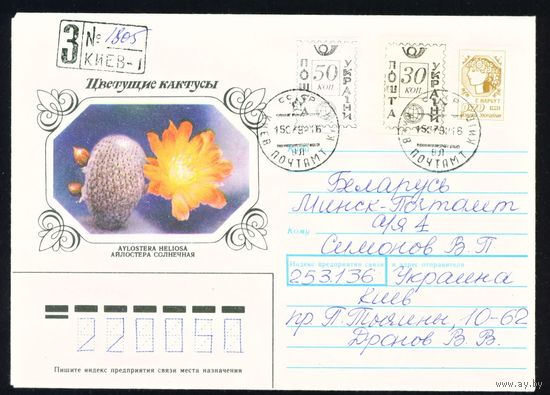 З № 1805
КИЕВ-1
Цветущие кактусы
ПОШТА 50 КОП УКРАЇНИ
ПОШТА 30 КОП УКРАЇНИ
СССР
15 0792 16
КИЕВ ПОЧТАМТ
AYLOSTERA HELIOSA
АЙЛОСТЕРА СОЛНЕЧНАЯ
Беларусь
Минск-Почтамт
а/я 4
Кому Семенов В.П
Индекс предприятия связи и адрес отправителя
253136 Украина
Киев
пр П Тычины, 10-62
Дронов В.В.
220050
Пишите индекс предприятия связи места назначения
www.ay.by